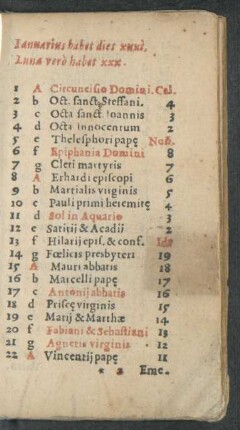 Ianuarius habet dies xxxi.
Luna verò habet xxx.
1 A Circuncisio Domini. Cal.
2 b Oct. sanct. Steffani. 4
3 c Octa sanct. Ioannis 3
4 d Octa Innocentum 2
5 e Thelesphori papę Non.
6 f Epiphania Domini 8
7 g Cleri martyris 7
8 A Erhardi episcopi 6
9 b Martialis virginis 5
10 c Pauli primi heremitę 4
11 d Sol in Aquario 3
12 e Satirij & Acadij 2
13 f Hilarij epis. & conf. Idº
14 g Fœlicis presbyteri 19
15 A Mauri abbatis 18
16 b Marcelli papę 17
17 c Antonij abbatis 16
18 d Priscę virginis 15
19 e Marij & Marthæ 14
20 f Fabiani & Sebastiani 13
21 g Agnetis virginis 12
22 A Vincentij papę 11
Eme.